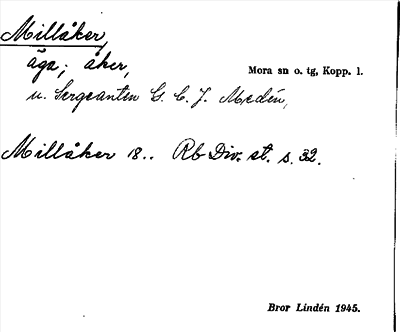 Millåker,
äga; åker,
Mora sn o. tg, Kopp. l.
u. Sergeanten G. C. J. Medén,
Millåker 18.. Rb Div. st. s. 32.
Bror Lindén 1945.